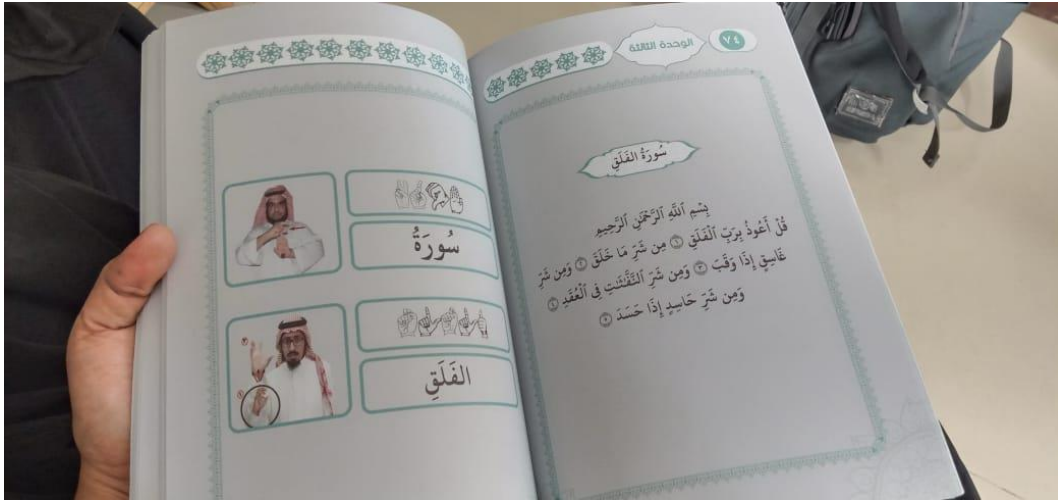 ٧٤
الوحدة الثالثة
سُورَةُ الفَلَقِ
بِسْمِ ٱللَّهِ ٱلرَّحْمَٰنِ ٱلرَّحِيمِ
قُلْ أَعُوذُ بِرَبِّ ٱلْفَلَقِ ١ مِن شَرِّ مَا خَلَقَ ٢ وَمِن شَرِّ
غَاسِقٍ إِذَا وَقَبَ ٣ وَمِن شَرِّ ٱلنَّفَّٰثَٰتِ فِى ٱلْعُقَدِ ٤
وَمِن شَرِّ حَاسِدٍ إِذَا حَسَدَ ٥
سُورَةُ
الفَلَقِ